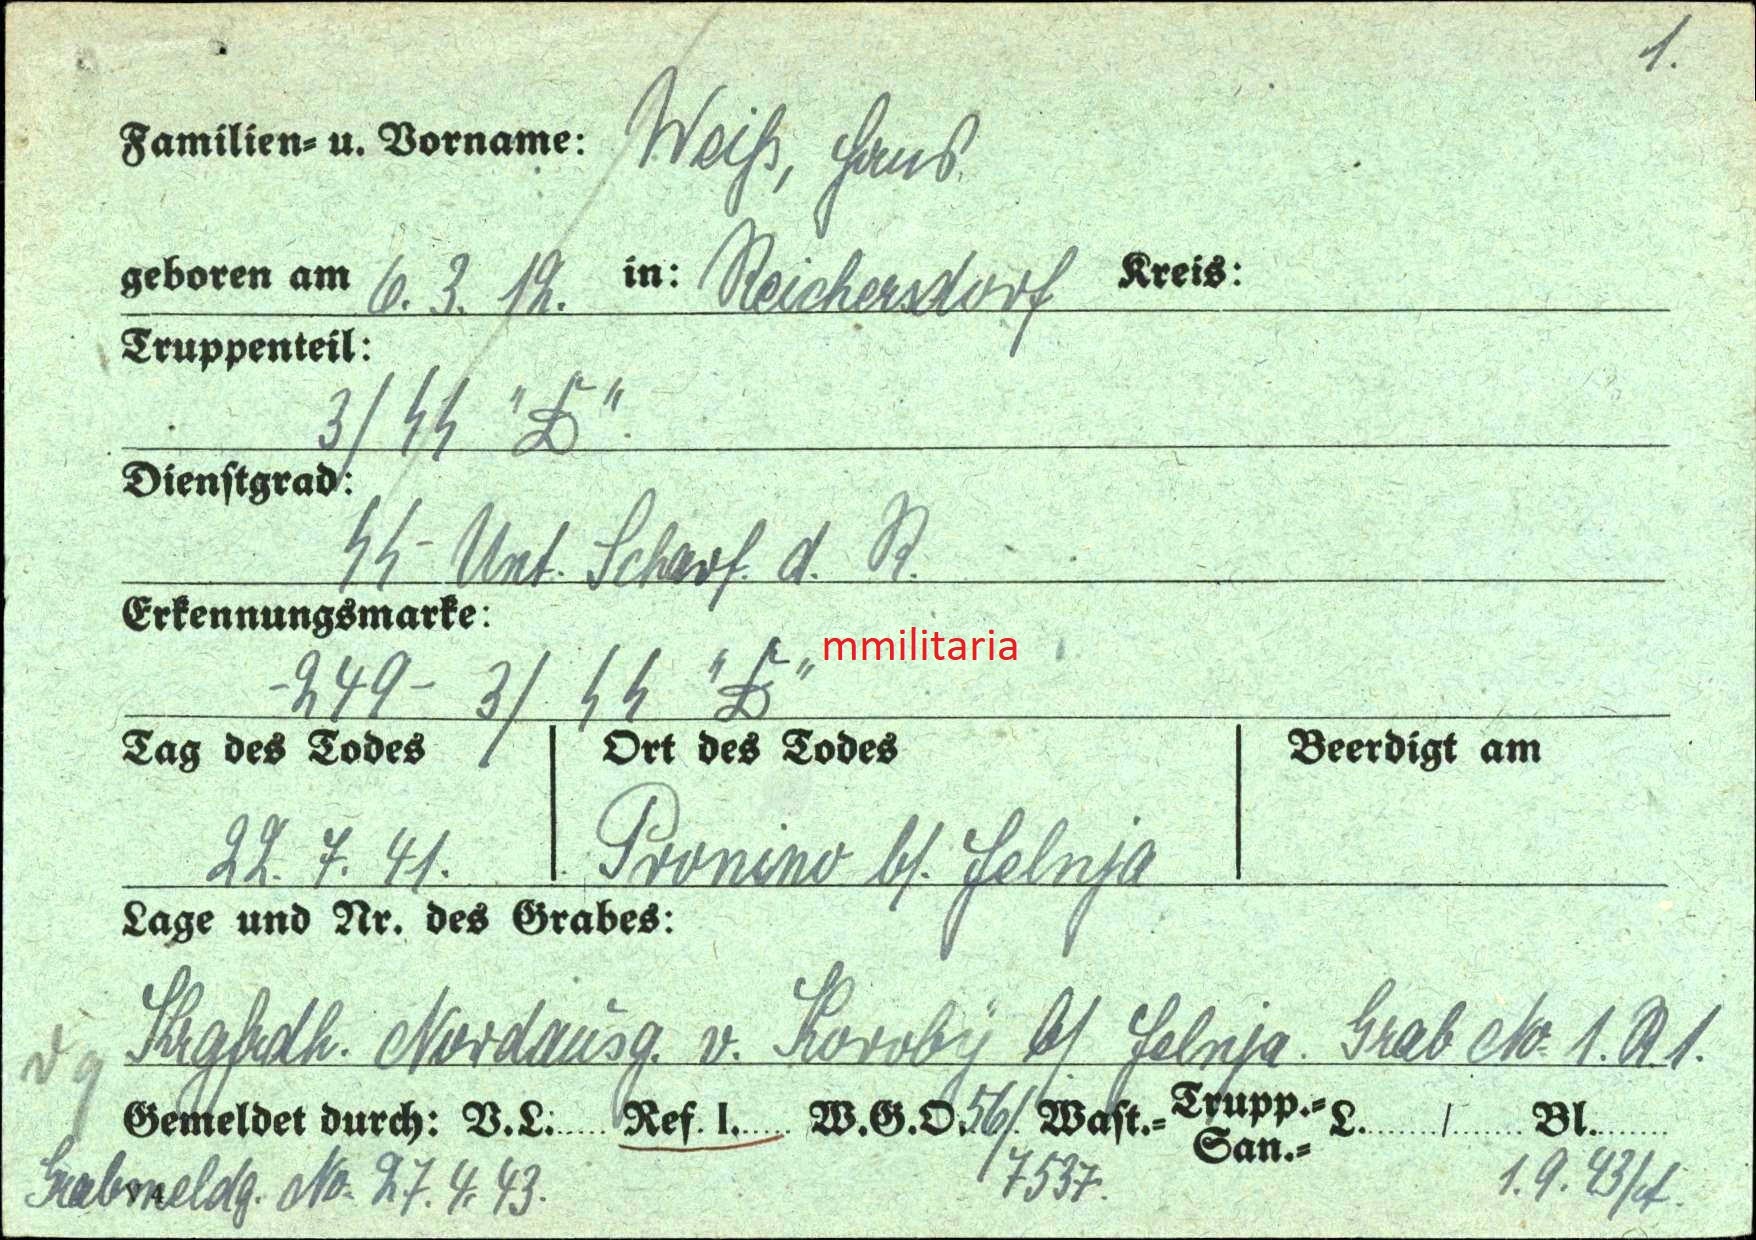 1.
Familien- u. Vorname: Weiß, Hans.
geboren am 6. 3. 12. in: Reichersdorf Kreis:
Truppenteil:
3/ SS "D".
Dienstgrad:
SS- Unt. Scharf. d. R.
Erkennungsmarke:
-249- 3/ SS "D"
mmilitaria
Tag des Todes Ort des Todes Beerdigt am
22. 7. 41. Pronino b/. Jelnja
Lage und Nr. des Grabes:
Krgfrdh. Nordausg. v. Koroby b/ Jelnja. Grab No. 1. R 1.
Gemeldet durch: V.L.: Ref. I. W.G.O. 56/ Wast.- Trupp.- San.- L. / Bl.
7537.
Grabmeldg. No. 27. 4. 43. 1. 9. 43/